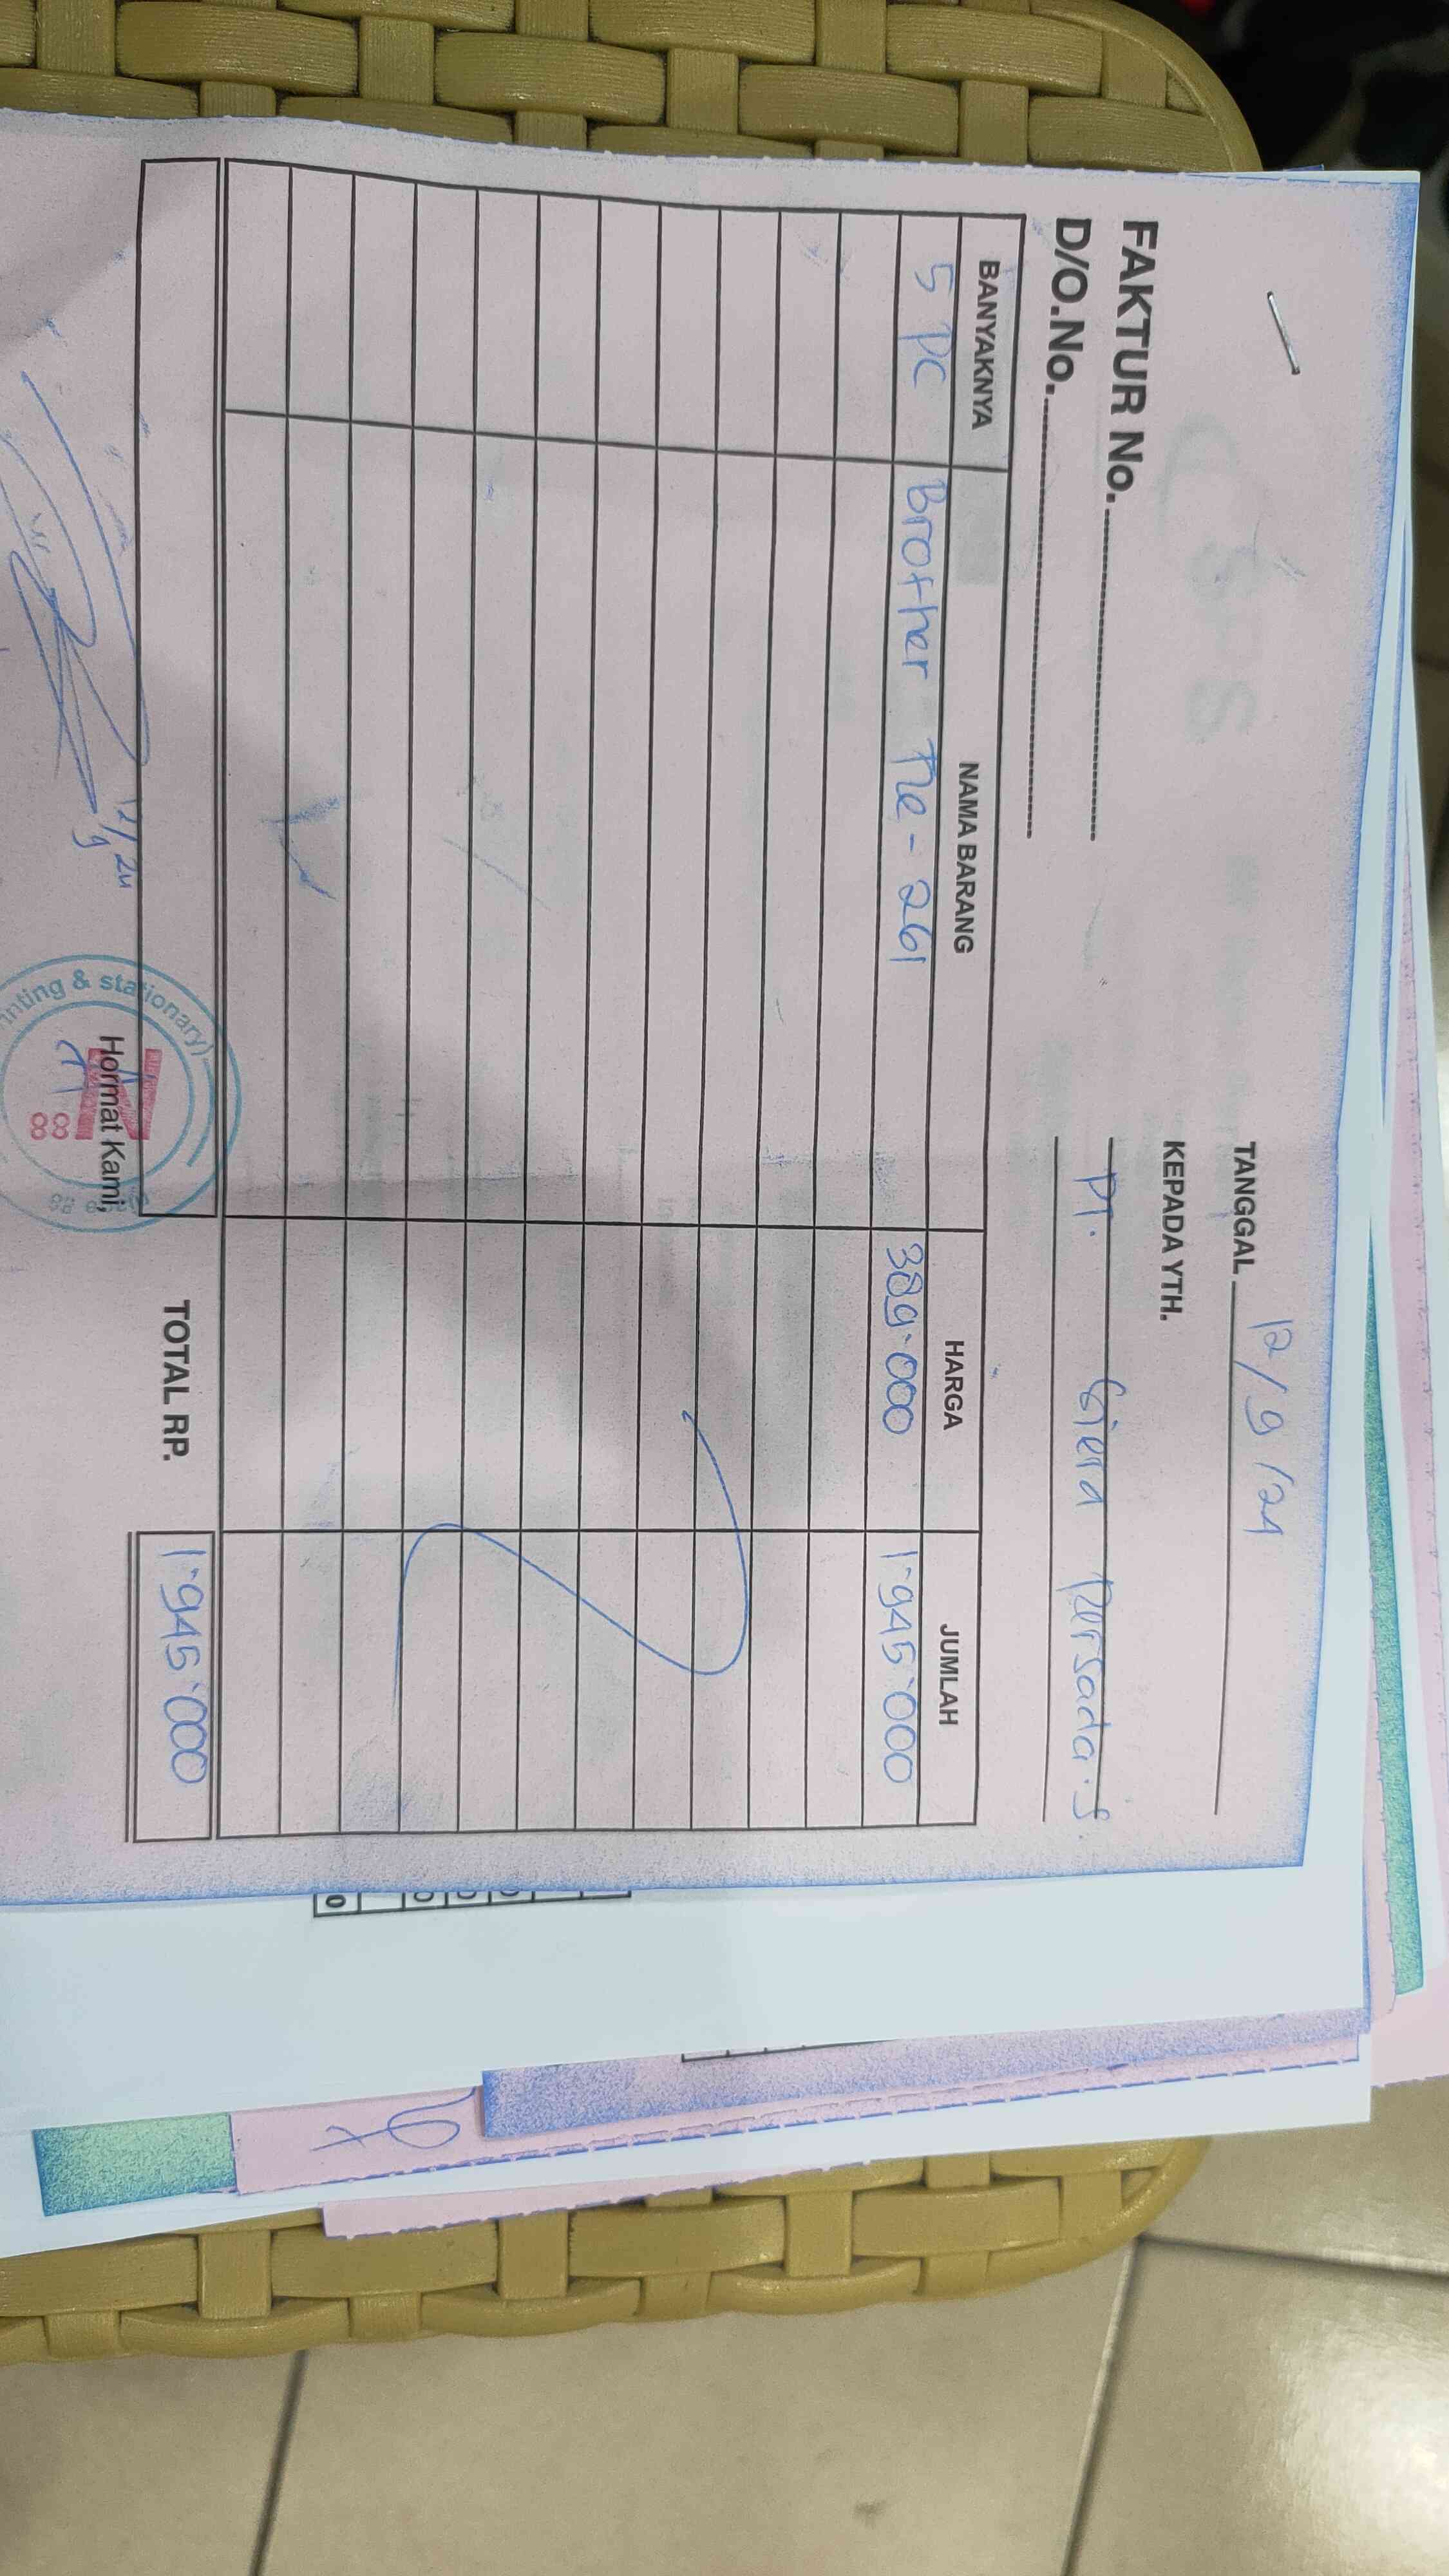 TANGGAL 12/9/24
KEPADA YTH.
FAKTUR No.
PT. Giera Persada.S.
D/O.No.
BANYAKNYA NAMA BARANG HARGA JUMLAH
5 pc Brother Tze-261 389.000 1.945.000
TOTAL RP. 1.945.000
12/9 24
Hormat Kami,
& stationary)
N
88